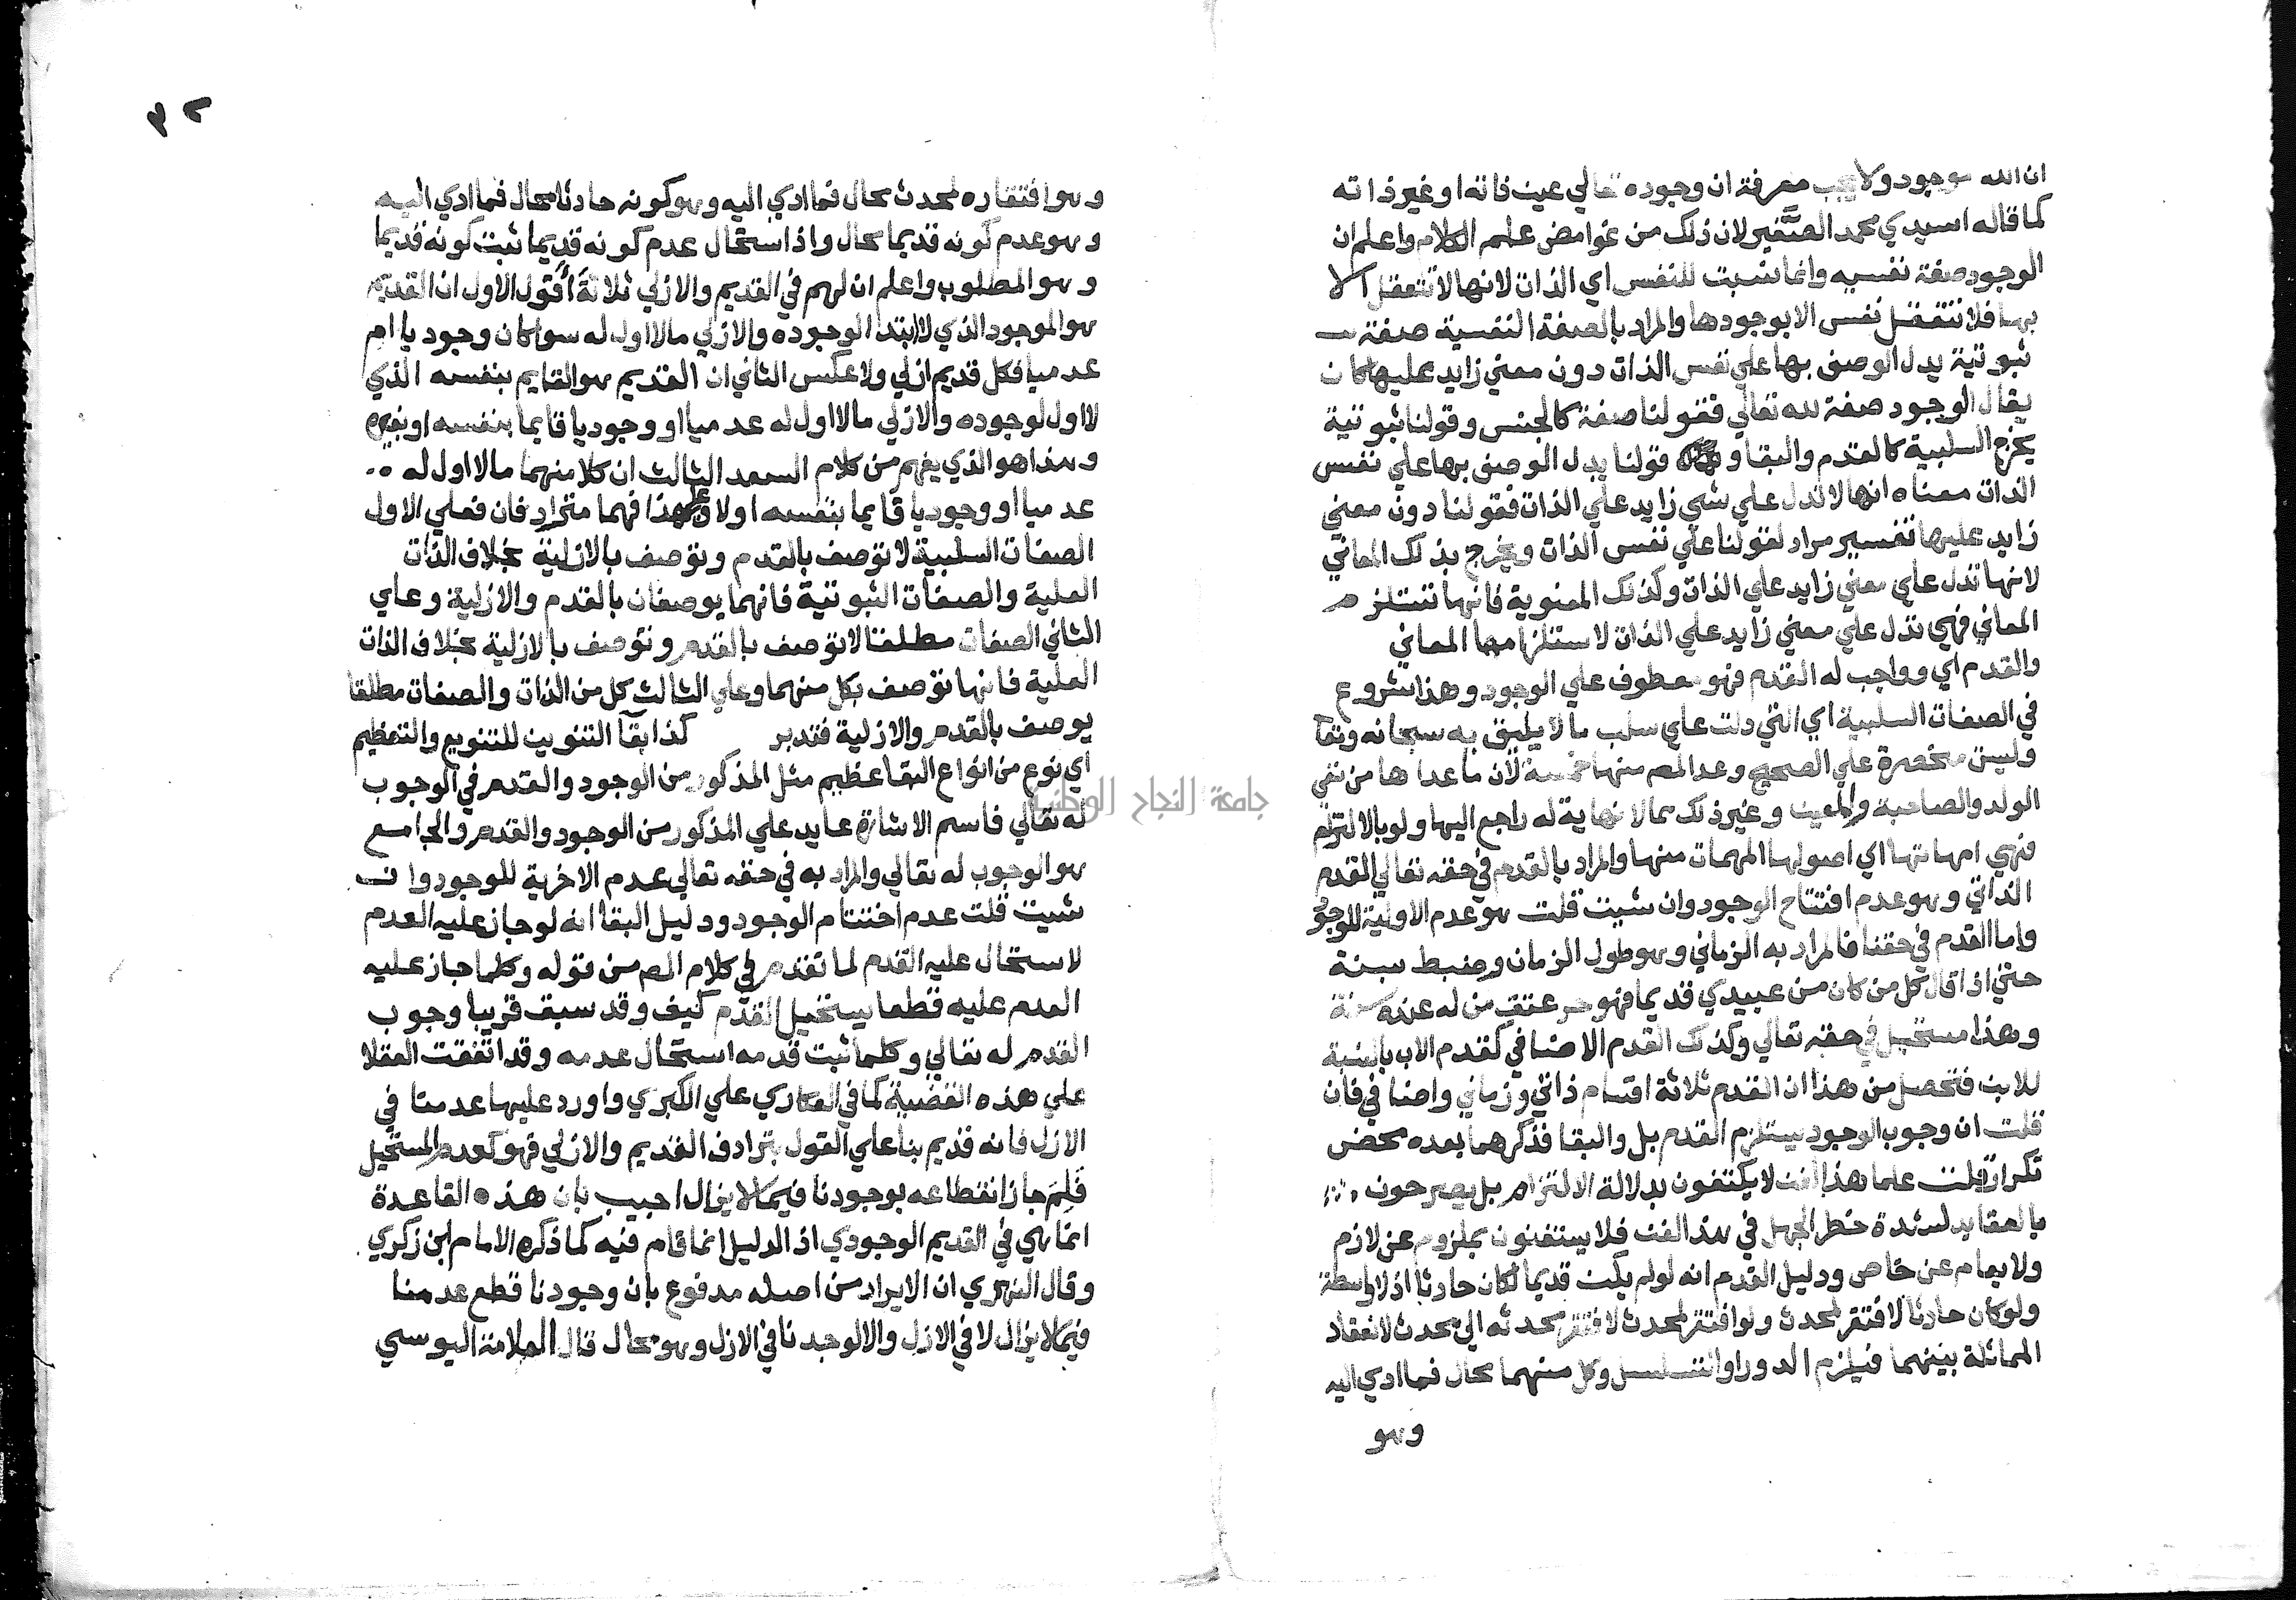 ان الله موجود ولا يجب معرفة ان وجوده تعالي عين ذاته او غير ذاته
كما قاله اسيدي محمد الصغير لان ذلك من غوامض علم الكلام واعلم ان
الوجود صفة نفسيه وانما نسبت للنفس اي الذات لانها لا تتعقل الا
بها فلا تتعقل نفس الا بوجودها والمراد بالصفة النفسية صفة
ثبوتية يدل الوصف بها علي نفس الذات دون معني زايد عليها كان
يقال الوجود صفة لله تعالي فقولنا صفة كالجنس وقولنا ثبوتية
يخرج السلبية كالقدم والبقا و قولنا يدل الوصف بها علي نفس
الذات معناه انها لا تدل علي شي زايد علي الذات فقولنا دون معني
زايد عليها تفسير مراد لقولنا علي نفس الذات ويخرج بذلك المعاني
لانها تدل علي معني زايد علي الذات وكذلك المعنوية فانها تستلزم
المعاني فهي تدل علي معني زايد علي الذات لاستلزامها المعاني
والقدم اي وواجب له القدم فهو معطوف علي الوجود وهذا شروع
في الصفات السلبية اي التي دلت علي سلب ما لا يليق به سبحانه وتعا
وليست منحصرة علي الصحيح وعد المص منها خمسة لان ما عداها من نفي
الولد والصاحبة والمعين وغير ذلك مما لا نهاية له راجع اليها ولو بالالتزام
فهي امهاتها اي اصولها المهمات منها والمراد بالقدم في حقه تعالي القدم
الذاتي وهو عدم افتتاح الوجود وان شيت قلت هو عدم الاولية للوجود
واما القدم في حقنا فالمراد به الزماني وهو طول الزمان وضبط بسنة
حتي اذا قال كل من كان من عبيدي قديما فهو حر عتق من له عنده سنة
وهذا مستحيل في حقه تعالي وكذلك القدم الاضافي كقدم الاب بالنسبة
للابن فتحصل من هذا ان القدم ثلاثة اقسام ذاتي وزماني واضافي فان
قلت ان وجوب الوجود يستلزم القدم بل والبقا فذكرهما بعده محض
تكرار قلت علما هذا الفن لا يكتفون بدلالة الالتزام بل يصرحون
بالعقايد لشدة خطر الجهل في هذا الفن فلا يستغنون بملزوم عن لازم
ولا بعام عن خاص ودليل القدم انه لو لم يكن قديما لكان حادثا اذ لا واسطة
ولو كان حادثا لافتقر لمحدث ولو افتقر لمحدث لافتقر محدثه الي محدث لانعقاد
المماثلة بينهما فيلزم الدور او التسلسل وكل منهما محال فما ادي اليه
وهو
٣٢
وهو افتقاره لمحدث محال فما ادي اليه وهو كونه حادثا محال فما ادي اليه
وهو عدم كونه قديما محال واذا استحال عدم كونه قديما ثبت كونه قديما
وهو المطلوب واعلم ان لهم في القديم والازلي ثلاثة اقول الاول ان القديم
هو الموجود الذي لا ابتدا لوجوده والازلي ما لا اول له سوا كان وجوديا ام
عدميا فكل قديم ازلي ولا عكس الثاني ان القديم هو القايم بنفسه الذي
لا اول لوجوده والازلي ما لا اول له عدميا او وجوديا قايما بنفسه او بغيره
وهذا هو الذي يفهم من كلام السعد الثالث ان كلا منهما ما لا اول له
عدميا او وجوديا قايما بنفسه او لا وعلي هذا فهما مترادفان فعلي الاول
الصفات السلبية لا توصف بالقدم وتوصف بالازلية بخلاف الذات
العلية والصفات الثبوتية فانهما يوصفان بالقدم والازلية وعلي
الثاني الصفات مطلقا لا توصف بالقدم وتوصف بالازلية بخلاف الذات
العلية فانها توصف بكل منهما وعلي الثالث كل من الذات والصفات مطلقا
يوصف بالقدم والازلية فتدبر كذا بقآ التنوين للتنويع والتعظيم
اي نوع من انواع البقا عظيم مثل المذكور من الوجود والقدم في الوجوب
له تعالي فاسم الاشارة عايد علي المذكور من الوجود والقدم والجامع
هو الوجوب له تعالي والمراد به في حقه تعالي عدم الاخرية للوجود وان
شيت قلت عدم اختتام الوجود ودليل البقا انه لو جاز عليه العدم
لاستحال عليه القدم لما تقدم في كلام المص من قوله وكلما جاز عليه
العدم عليه قطعا يستحيل القدم كيف وقد سبق قريبا وجوب
القدم له تعالي وكلما ثبت قدمه استحال عدمه وقد اتفقت العقلا
علي هذه القضية كما في العكاري علي الكبري واورد عليها عدمنا في
الازل فانه قديم بنا علي القول بترادف القديم والازلي فهو كعدم المستحيل
فلم جاز انقطاعه بوجودنا فيما لا يزال اجيب بان هذه القاعدة
انما هي في القديم الوجودي اذ الدليل انما قام فيه كما ذكره الامام ابن زكري
وقال الفهري ان الايراد من اصله مدفوع بان وجودنا قطع عدمنا
فيما لا يزال لا في الازل والا لوجدنا في الازل وهو محال قال العلامة اليوسي
جامعة النجاح الوطنية